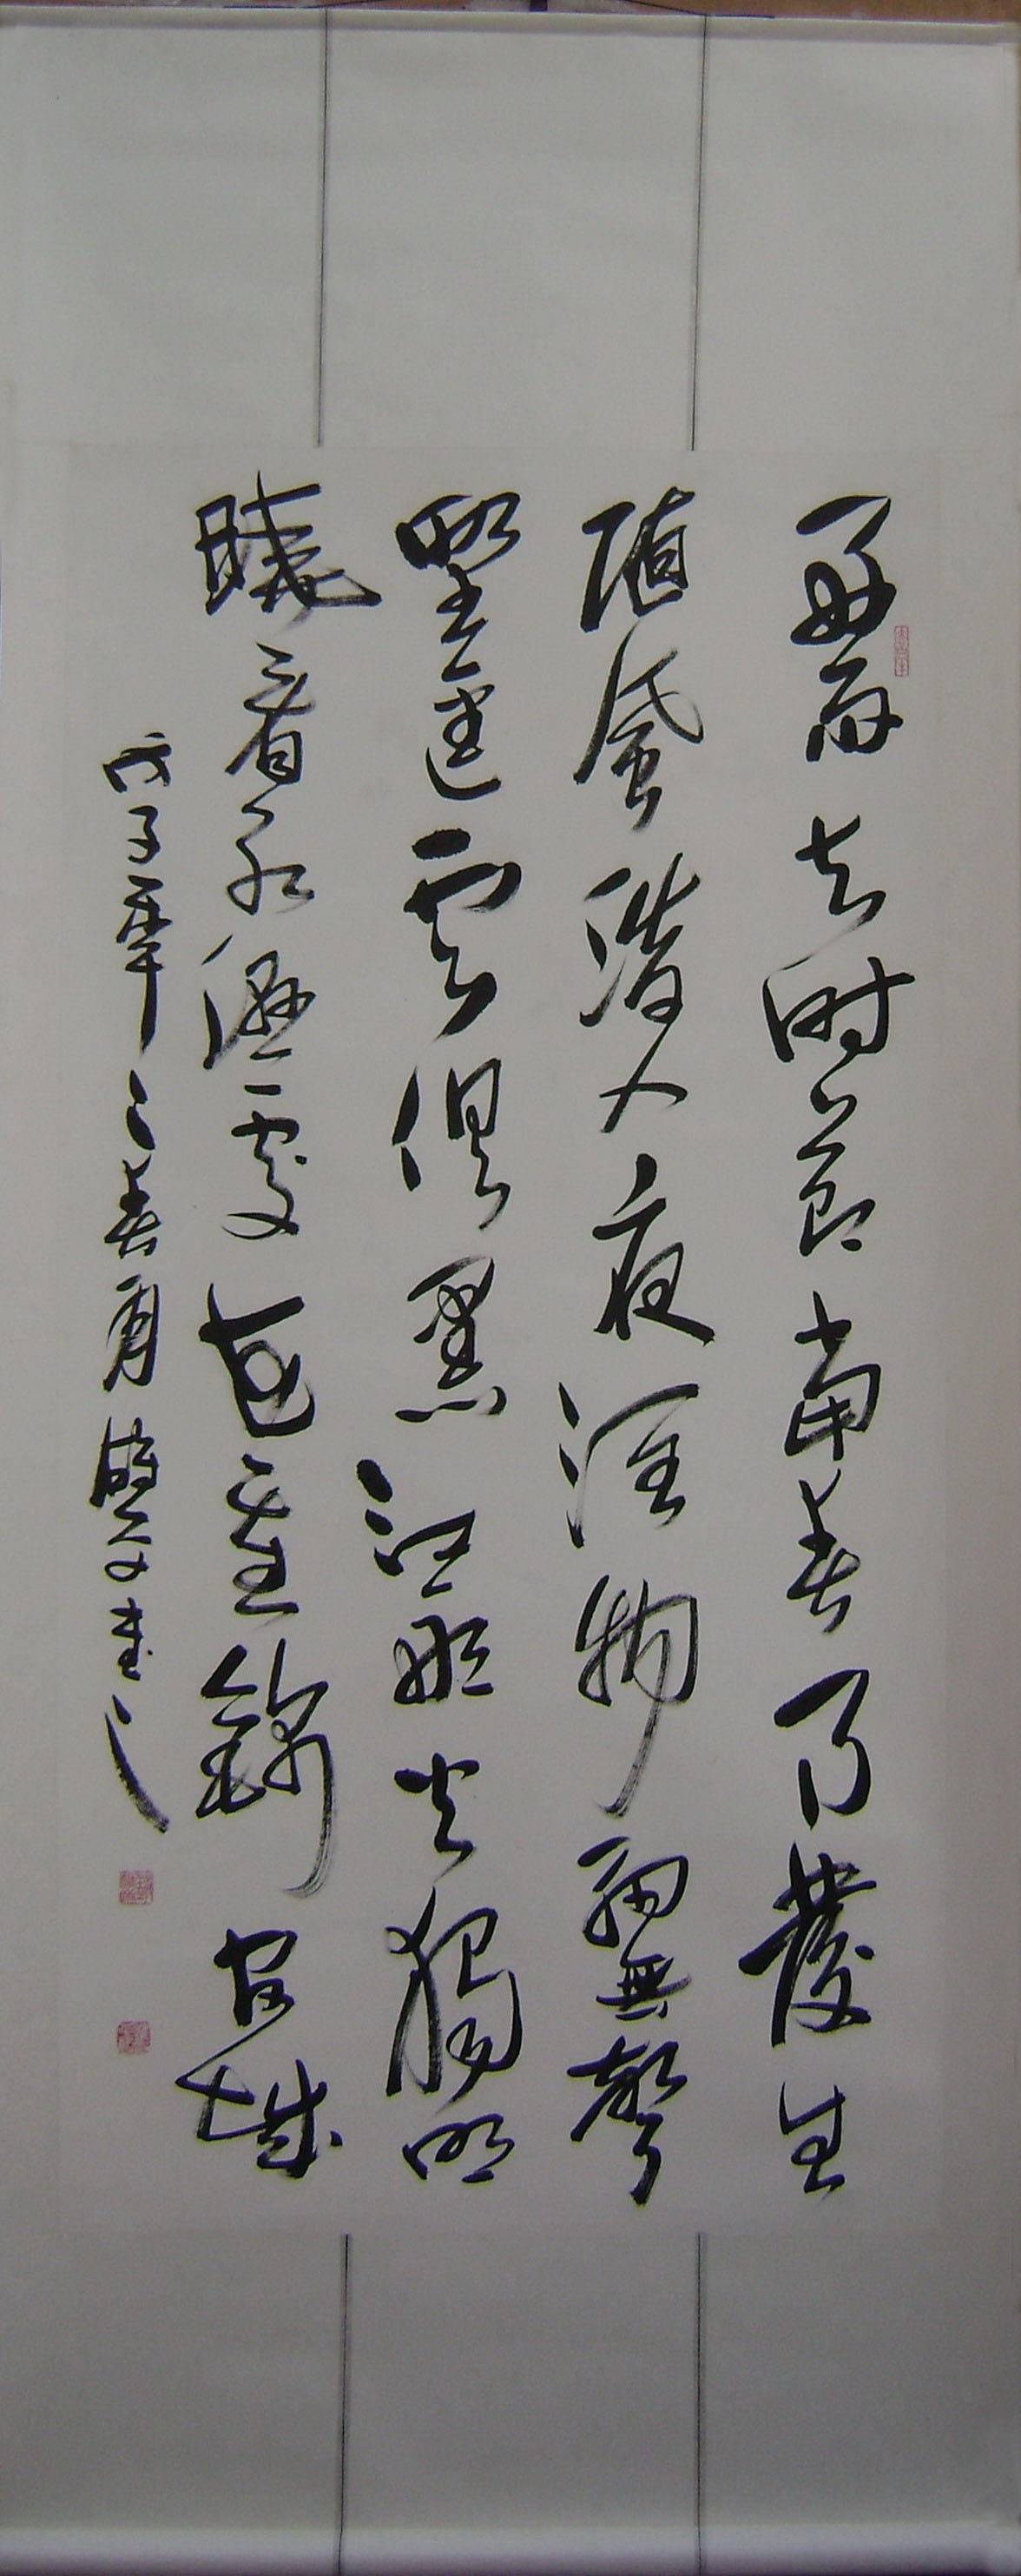 好雨知時節當春乃發生
隨風潛入夜潤物細無聲
野徑雲俱黑江船火獨明
曉看紅濕處花重錦官城
戊子年之春月
書